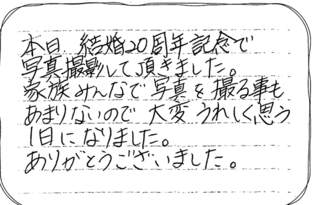 本日、結婚20周年記念で
写真撮影して頂きました。
家族みんなで写真を撮る事も
あまりないので大変うれしく思う
1日になりました。
ありがとうございました。